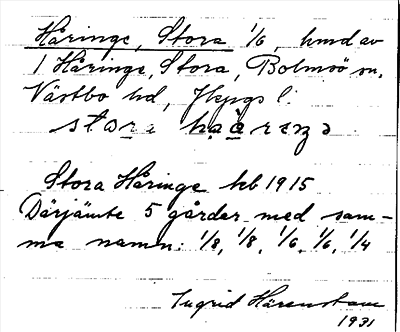 Håringe, Stora 1/6, hmd av
1 Håringe, Stora, Bolmsö sn,
Västbo hd, Jkpgs l.
Stora Håringe kb 1915
Därjämte 5 gårder med sam-
ma namn: 1/8, 1/8, 1/6, 1/6, 1/4
Ingrid Härenstam
1931